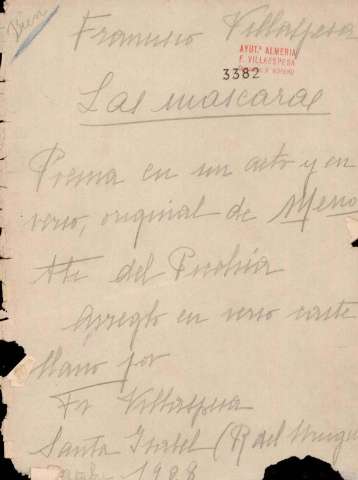 Bien
Francisco Villaespesa
AYUT.º ALMERIA
F. VILLAESPESA
3382
Las mascaras
Poema en un acto y en
verso, original de Meno
tti del Picchia
Arreglo en verso caste
llano por
Fr Villaespesa
Santa Isabel (R del Urugu
1928